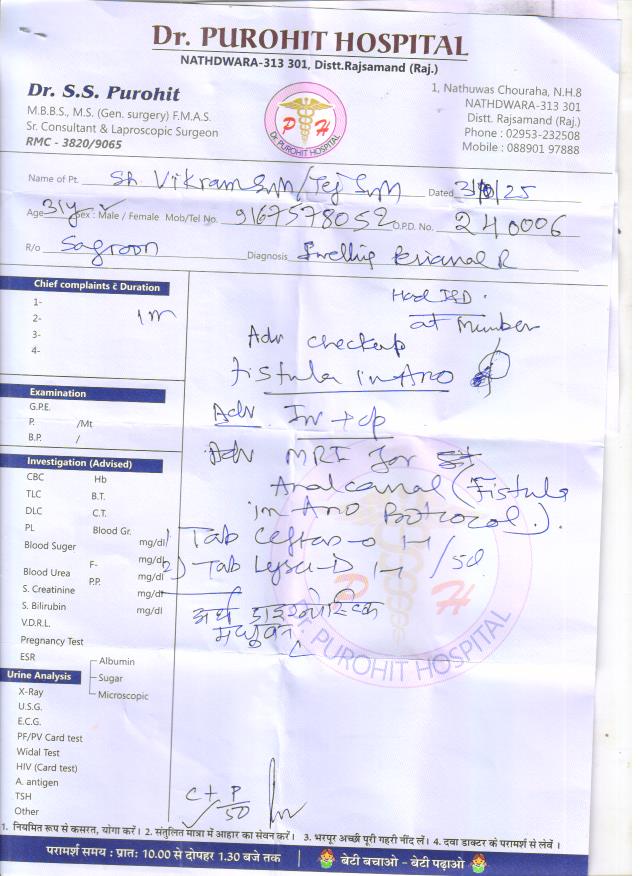 Dr. PUROHIT HOSPITAL
NATHDWARA-313 301, Distt.Rajsamand (Raj.)
Dr. S.S. Purohit
M.B.B.S., M.S. (Gen. surgery) F.M.A.S.
Sr. Consultant & Laproscopic Surgeon
RMC - 3820/9065
P H
Dr. PUROHIT HOSPITAL
1, Nathuwas Chouraha, N.H.8
NATHDWARA-313 301
Distt. Rajsamand (Raj.)
Phone : 02953-232508
Mobile : 088901 97888
Name of Pt. Sh. Vikram Dated 25
Age 31y Sex : Male / Female Mob/Tel No. 9167578052 O.P.D. No. 240006
R/o Sagroon Diagnosis Swelling Perianal R
Chief complaints c̄ Duration
1-
2- 1m
3-
4-
Had I&D
at Mumber
Adv checkup
fistula in-Ano
Examination
G.P.E.
P. /Mt
B.P. /
Adv
Adv MRI for
Anal canal (Fistula
in-Ano Protocol).
Investigation (Advised)
CBC Hb
TLC B.T.
DLC C.T.
PL Blood Gr.
Blood Suger mg/dl
F- mg/dl
Blood Urea P.P. mg/dl
S. Creatinine mg/dl
S. Bilirubin mg/dl
V.D.R.L.
Pregnancy Test
ESR
1) Tab Ceftas-O
2) Tab Lyser-D / 5d
P H
DR. PUROHIT HOSPITAL
Urine Analysis
Albumin
Sugar
Microscopic
X-Ray
U.S.G.
E.C.G.
PF/PV Card test
Widal Test
HIV (Card test)
A. antigen
TSH
Other
C + P
50
1. नियमित रूप से कसरत, योगा करें। 2. संतुलित मात्रा में आहार का सेवन करें। 3. भरपूर अच्छी पूरी गहरी नींद लें। 4. दवा डाक्टर के परामर्श से लेवें।
परामर्श समय : प्रातः 10.00 से दोपहर 1.30 बजे तक बेटी बचाओ - बेटी पढ़ाओ